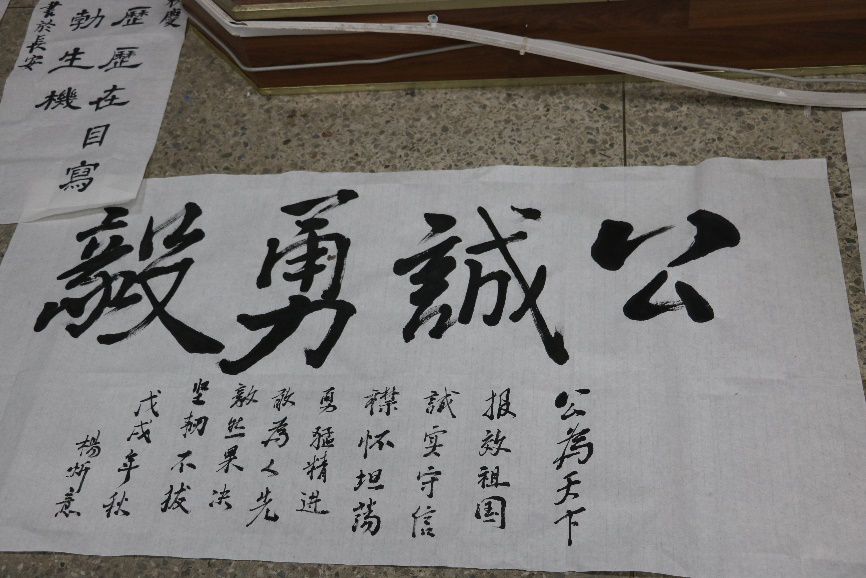 慶
歷歷在目寫
勃生機
書於長安
公誠勇毅
公為天下
报效祖国
誠实守信
襟怀坦蕩
勇猛精进
敢為人先
毅然果决
坚韧不拔
戊戌年秋
楊炘意